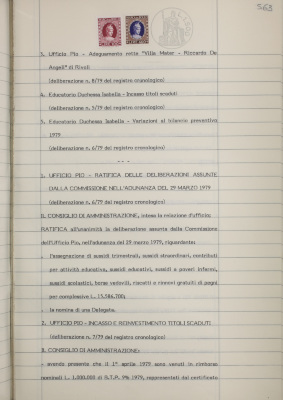 563
3. Ufficio Pio - Adeguamento rette "Villa Mater - Riccardo De
Angeli" di Rivoli
(deliberazione n. 8/79 del registro cronologico)
4. Educatorio Duchessa Isabella - Incasso titoli scaduti
(deliberazione n. 5/79 del registro cronologico)
5. Educatorio Duchessa Isabella - Variazioni al bilancio preventivo
1979
(deliberazione n. 6/79 del registro cronologico)
- - -
1. UFFICIO PIO - RATIFICA DELLE DELIBERAZIONI ASSUNTE
DALLA COMMISSIONE NELL'ADUNANZA DEL 29 MARZO 1979
(deliberazione n. 6/79 del registro cronologico)
IL CONSIGLIO DI AMMINISTRAZIONE, intesa la relazione d'ufficio;
RATIFICA all'unanimità le deliberazione assunte dalla Commissione
dell'Ufficio Pio, nell'adunanza del 29 marzo 1979, riguardante:
l'assegnazione di sussidi trimestrali, sussidi straordinari, contributi
per attività educative, sussidi educativi, sussidi a poveri infermi,
sussidi scolastici, borse vedovili, riscatti e rinnovi gratuiti di pegni
per complessive L. 15.586.700;
la nomina di una Delegata.
2. UFFICIO PIO - INCASSO E REINVESTIMENTO TITOLI SCADUTI
(deliberazione n. 7/79 del registro cronologico)
IL CONSIGLIO DI AMMINISTRAZIONE:
- avendo presente che il 1° aprile 1979 sono venuti in rimborso
nominali L. 1.000.000 di B.T.P. 9% 1979, rappresentati dal certificato